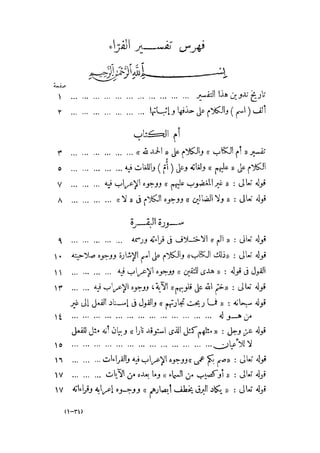 فهرس تفسير الفراء
بسم الله الرحمن الرحيم
صفحة
تاريخ تدوين هذا التفسير ... ... ... ... ... ... ... ... ... ... ... ١
ألف ( اسم ) والكلام على حذفها و إثباتها ... ... ... ... ... ... ٢
أم الكتاب
تفسير « أم الكتاب » والكلام على « الحمد لله » ... ... ... ... ... ٣
الكلام على « عليهم » ولغاته وعلى ( أُمّ ) واللغات فيه ... ... ... ... ٥
قوله تعالى : « غير المغضوب عليهم » ووجوه الإعراب فيه ... ... ... ٧
قوله تعالى : « ولا الضالين » ووجوه الكلام فى « لا » ... ... ... ... ٨
سورة البقرة
قوله تعالى : « الم » الاختلاف فى قراءته ورسمه ... ... ... ... ... ٩
قوله تعالى : «ذلك الكتاب» والكلام على اسم الإشارة ووجوه صلاحيته ١٠
القول فى قوله : « هدى للمتقين » ووجوه الإعراب فيه ... ... ... ... ١١
قوله تعالى : «ختم الله على قلوبهم» الآية، ووجوه الإعراب فيه ... ... ١٣
قوله سبحانه : « فما ربحت تجارتهم » والقول فى إسناد الفعل إلى غير
من هو له ... ... ... ... ... ... ... ... ... ... ... ... ١٤
قوله عز وجل : « مثلهم كمثل الذى استوقد نارا » وبيان أنه مثل للفعل
لا للأعيان ... ... ... ... ... ... ... ... ... ... ... ... ١٥
قوله تعالى : «صم بكم عمى» ووجوه الإعراب فيه والقراءات ... ... ١٦
قوله تعالى : « أو كصيب من السماء » وما بعده من الآيات ... ... ... ١٧
قوله تعالى : « يكاد البرق يخطف أبصارهم » ووجوه إعرابه وقراءاته ١٧
(٣٤-١)